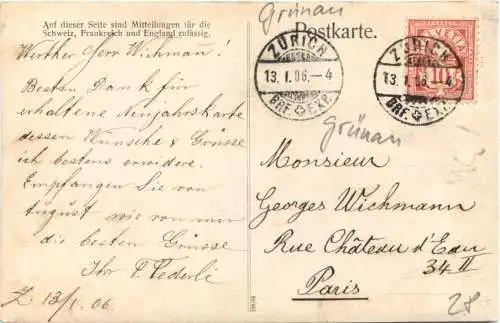 Auf dieser Seite sind Mitteilungen für die
Schweiz, Frankreich und England zulässig.
Werther Herr Wichmann!
Besten Dank für
erhaltene Neujahrskarte
dessen Wünsche & Grüsse
ich bestens erwidere.
Empfangen Sie von
August wie von mir
die besten Grüsse
Ihr
Z. 13/1. 06.
Grünau
Postkarte.
ZÜRICH
13. I. 06. – 4
BRF. EXP.
ZÜRICH
13. I. 06. – 4
BRF. EXP.
HELVETIA
10
Grünau
Monsieur
Georges Wichmann
Rue Château d'Eau
34 II
Paris
28